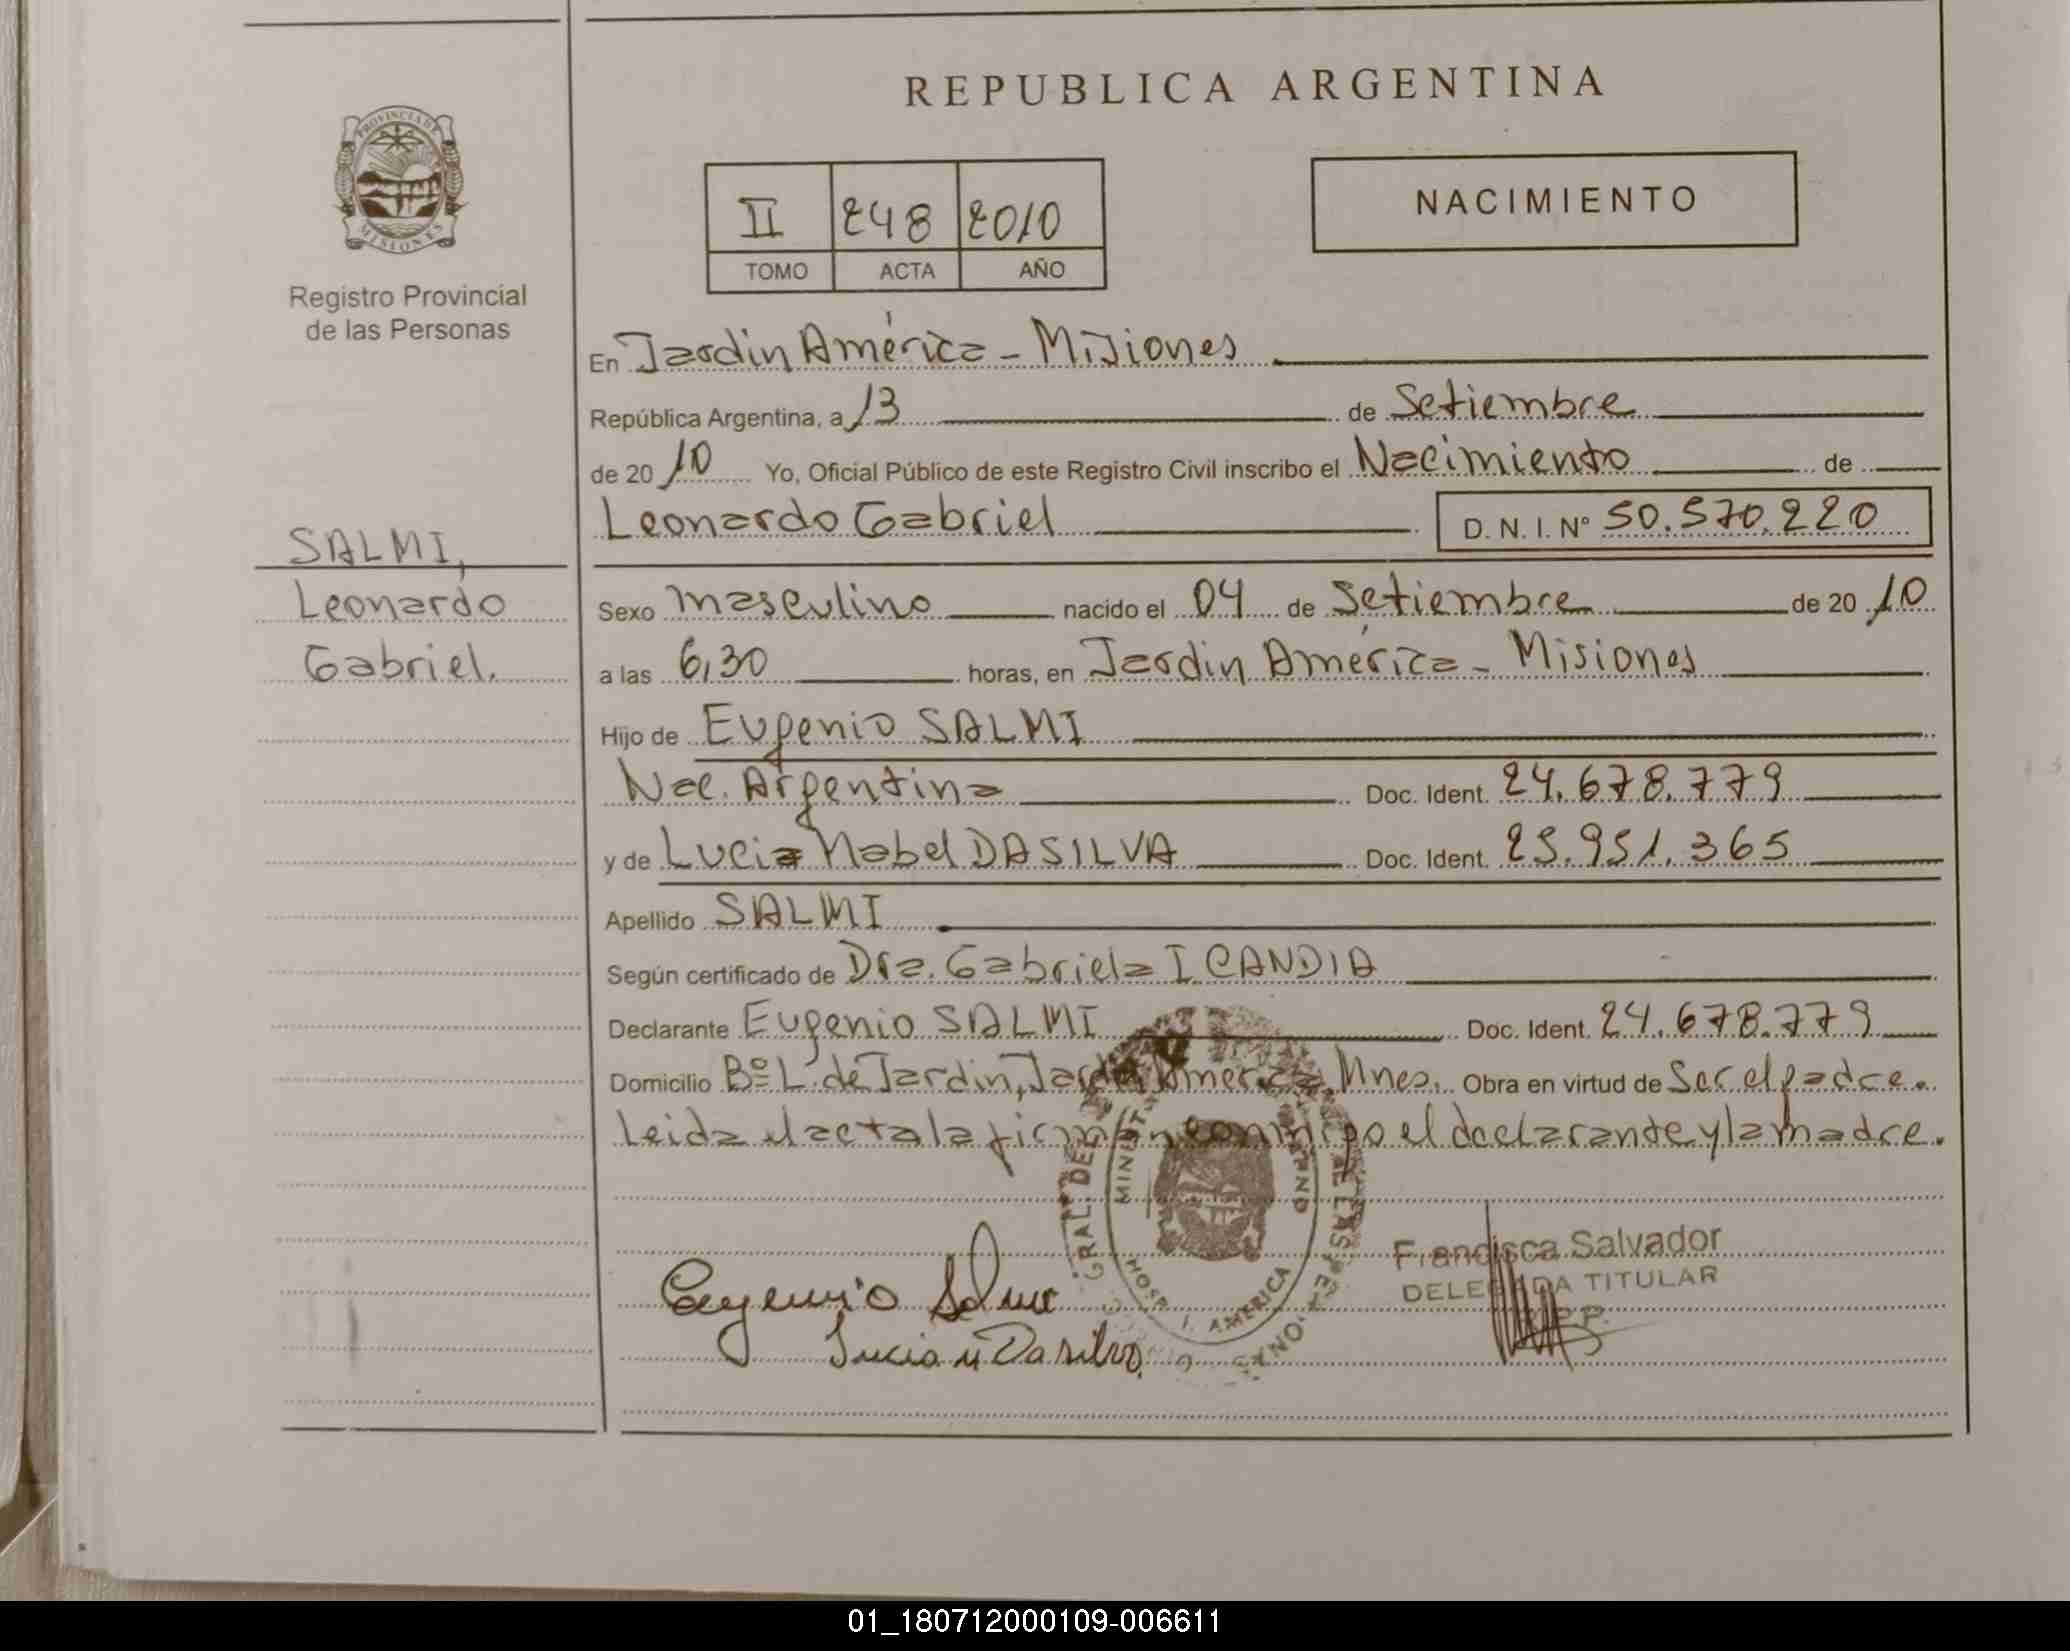 REPUBLICA ARGENTINA
PROVINCIA DE
MISIONES
Registro Provincial
de las Personas
II 248 2010
TOMO ACTA AÑO
NACIMIENTO
En Jardin América - Misiones
República Argentina, a 13 de Setiembre
de 20 10 Yo, Oficial Público de este Registro Civil inscribo el Nacimiento de
Leonardo Gabriel D. N. I. Nº 50.570.220
SALMI,
Leonardo
Gabriel.
Sexo masculino nacido el 04 de Setiembre de 20 10
a las 6,30 horas, en Jardin América - Misiones
Hijo de Eugenio SALMI
Nac. Argentina Doc. Ident. 24.678.779
y de Lucia Mabel DASILVA Doc. Ident. 25.951.365
Apellido SALMI
Según certificado de Dra. Gabriela I. CANDIA
Declarante Eugenio SALMI Doc. Ident. 24.678.779
Domicilio Bº L. de Jardin, Jardin América, Mnes. Obra en virtud de Ser el padre.
Leida el acta la firman conmigo el declarante y la madre.
GRAL. DE
HOSP. J. AMERICA
Francisca Salvador
DELEGADA TITULAR
R.P.P.
Eugenio Salmi
Lucia M Dasilva
01_180712000109-006611